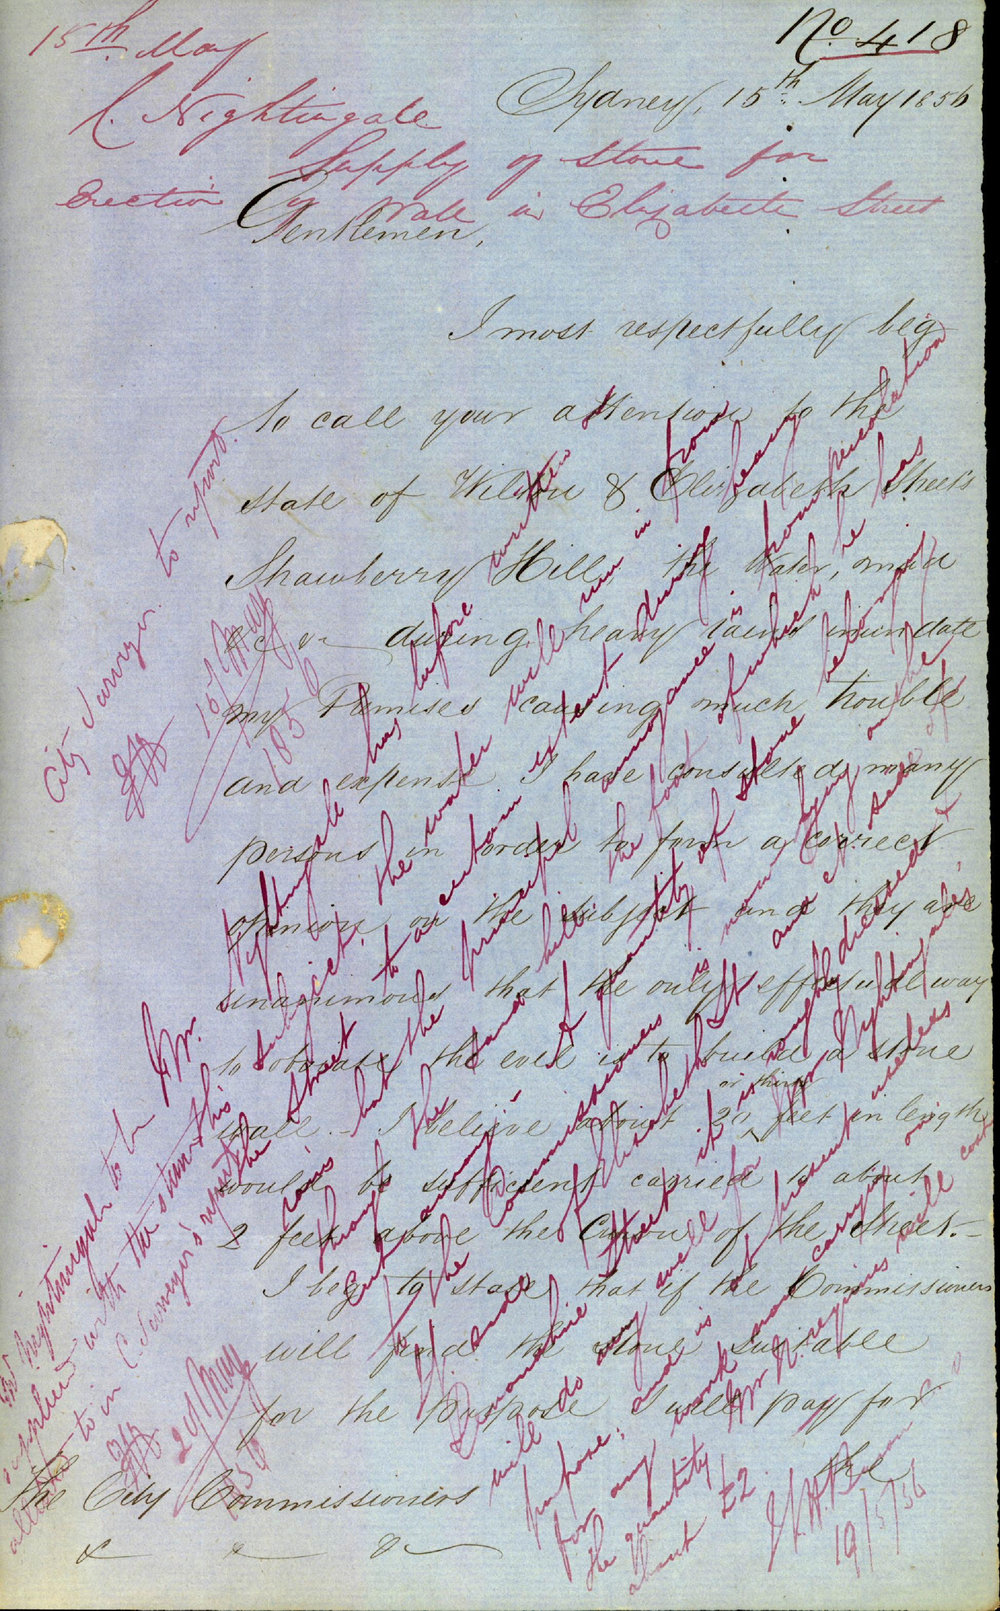 No. 418
15th May
C. Nightingale
Supply of Stone for
Erection of Wall in Elizabeth Street
Sydney, 15th May 1856
Gentlemen,
I most respectfully beg
to call your attention to the
state of Wilton & Elizabeth Streets
Strawberry Hill the Water, mud
&c &c during heavy rains inundate
my Premises causing much trouble
and expense I have consulted many
persons in order to form a correct
opinion on the subject and they are
unanimous that the only effectual way
to obviate the evil is to build a stone
wall - I believe about 20 or thirty feet in length
would be sufficient carried to about
2 feet above the Curve of the Street. -
I beg to state that if the Commissioners
will find the stone suitable
for the purpose I will pay for
the
The City Commissioners
& &c
City Surveyor to report.
15/May
1856
Mr. Nightingale has before written
this subject, the water will run in from
the street to a certain extent during heavy
rains but the principal annoyance is from percolation
through the sand hill the foot of which he has
cut away - A quantity of stone belonging
to the Commissioners is now lying on the
W. side of Elizabeth St and N. side of
Devonshire Street it is roughly dressed &
will do very well for Mr Nightingale's
purpose; and is at present useless
for any work now carrying on
the quantity Mr N. requires will cost
about £2
19/5/56
Mr Nightingale to be
supplied with the stone
alluded to in C. Surveyor's report
20/May
1856